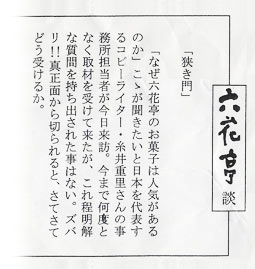 六花亭 談
「狭き門」
「なぜ六花亭のお菓子は人気がある
のか」こゝが聞きたいと日本を代表す
るコピーライター・糸井重里さんの事
務所担当者が今日来訪。今まで何度と
なく取材を受けて来たが、これ程明解
な質問を持ち出された事はない。ズバ
リ!!真正面から切られると、さてさて
どう受けるか。